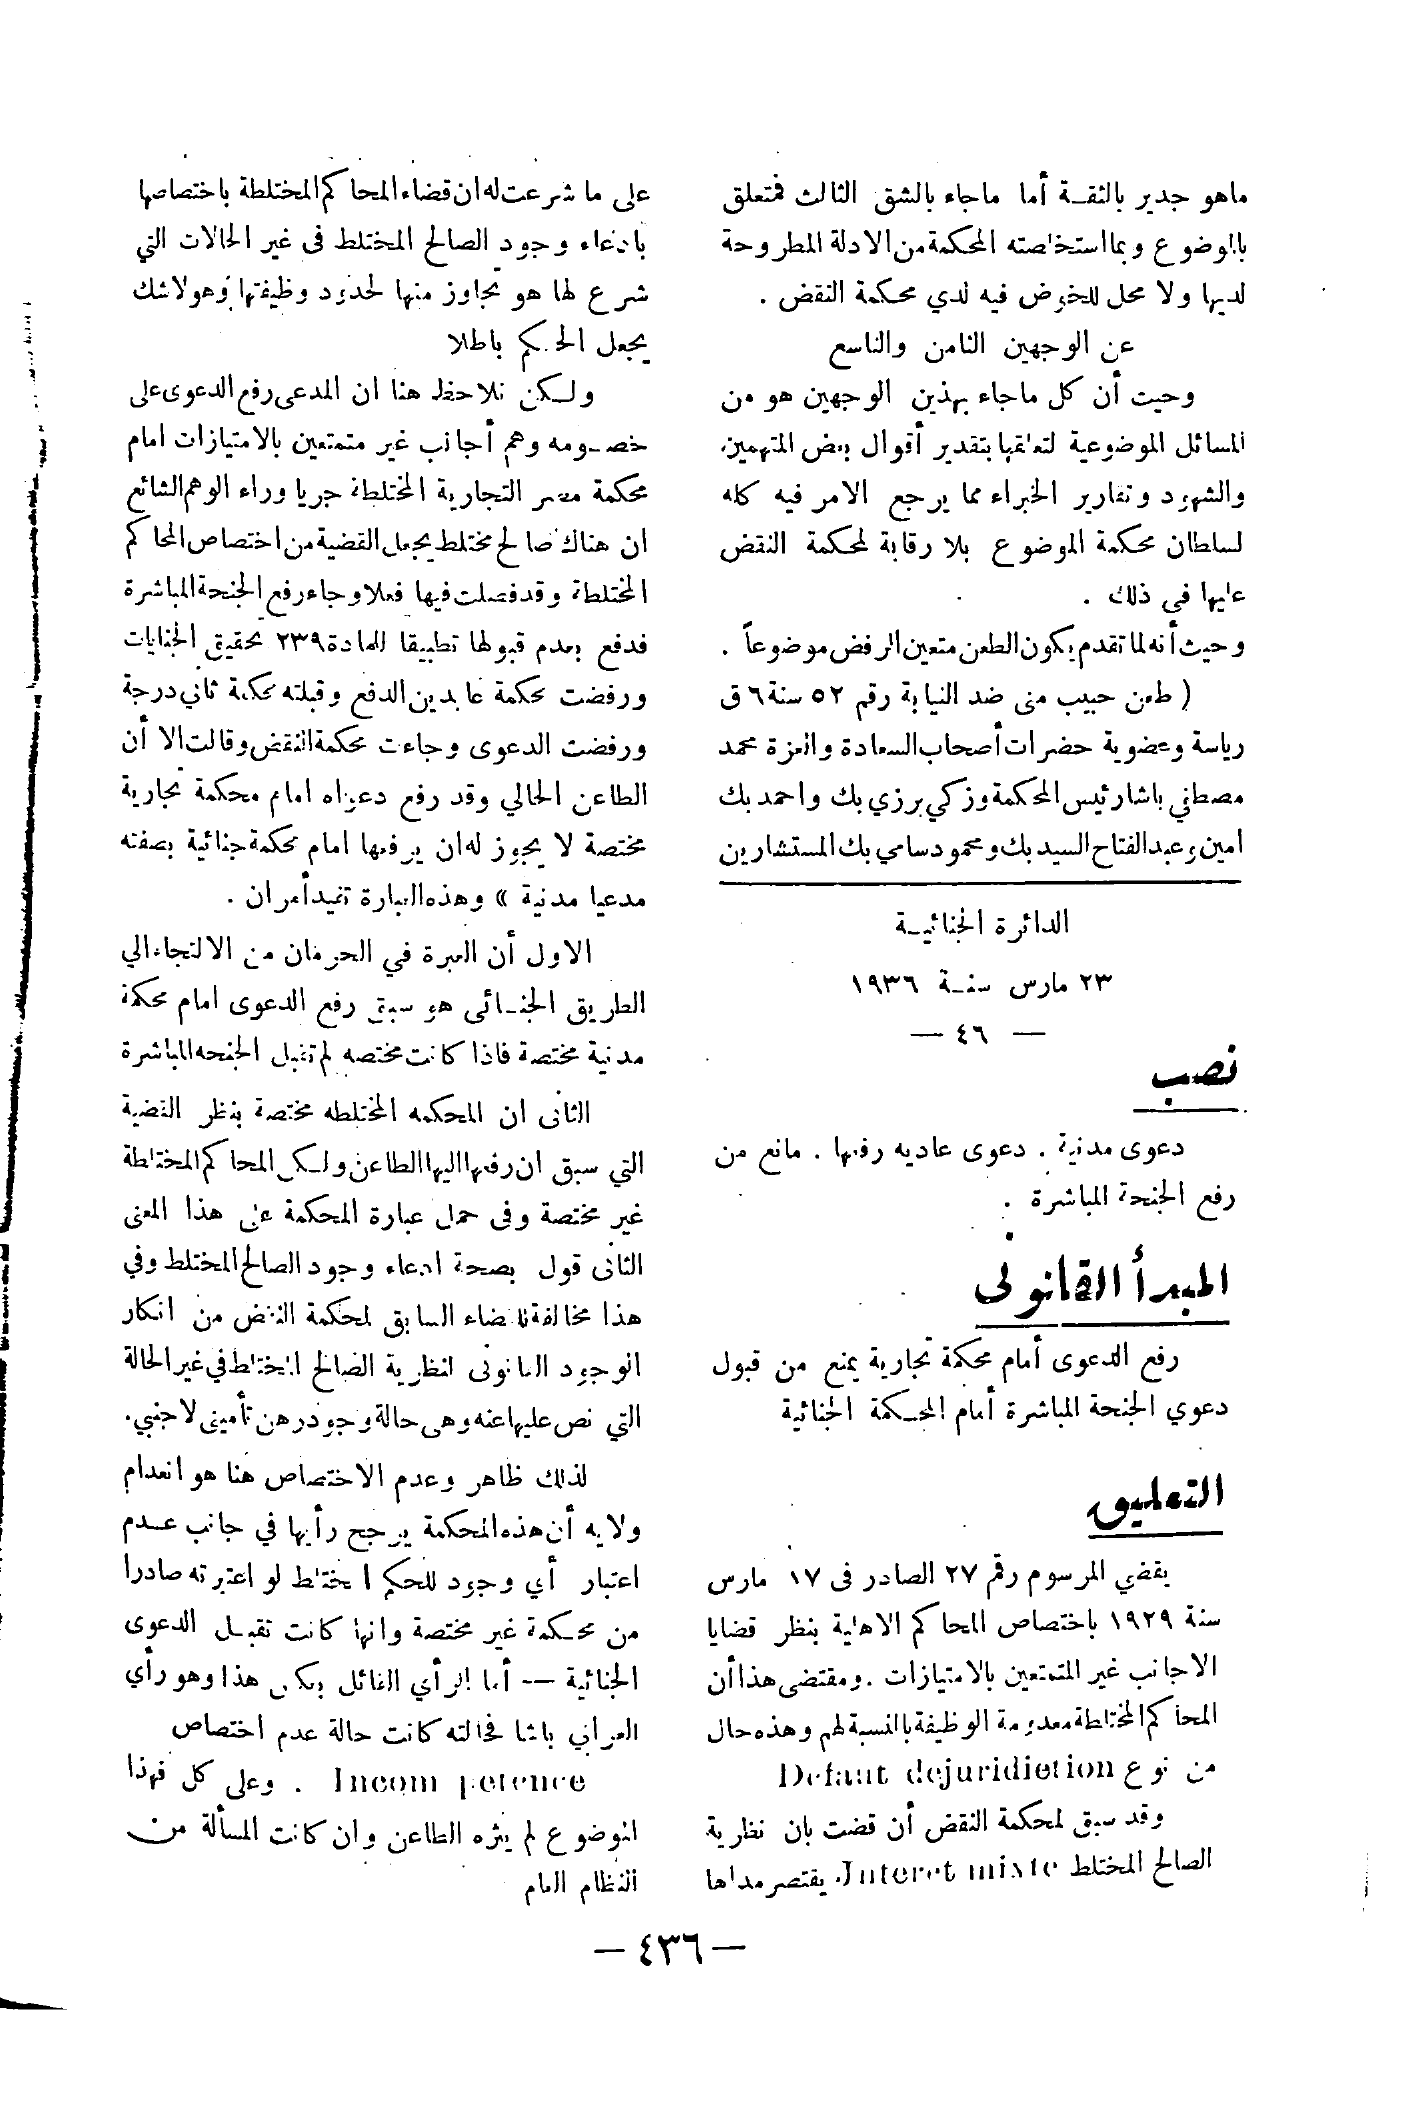 ماهو جدير بالثقة أما ماجاء بالشق الثالث فمتعلق
بالوضوع وبما استخلصته المحكمة من الادلة المطروحة
لديها ولا محل للخوض فيه لدي محكمة النقض .
عن الوجهين الثامن والتاسع
وحيث أن كل ماجاء بهذين الوجهين هو من
المسائل الموضوعية لتعلقها بتقدير أقوال بعض المتهمين
والشهود وتقارير الخبراء مما يرجع الامر فيه كله
لسلطان محكمة الموضوع بلا رقابة لمحكمة النقض
عليها في ذلك .
وحيث أنه لما تقدم يكون الطعن متعين الرفض موضوعاً .
( طعن حبيب منى ضد النيابة رقم ٥٢ سنة ٦ ق
رياسة وعضوية حضرات أصحاب السعادة والعزة محمد
مصطفي باشا رئيس المحكمة وزكي برزي بك واحمد بك
امين وعبد الفتاح السيد بك ومحمود سامي بك المستشارين
الدائرة الجنائية
٢٣ مارس سنة ١٩٣٦
— ٤٦ —
نصب
دعوى مدنية . دعوى عاديه رفعها . مانع من
رفع الجنحة المباشرة .
المبدأ القانونى
رفع الدعوى أمام محكمة تجارية يمنع من قبول
دعوي الجنحة المباشرة أمام المحكمة الجنائية
التعليق
يقضي المرسوم رقم ٢٧ الصادر فى ١٧ مارس
سنة ١٩٢٩ باختصاص المحاكم الاهلية بنظر قضايا
الاجانب غير المتمتعين بالامتيازات . ومقتضى هذا أن
المحاكم المختلطة معدومة الوظيفة بالنسبة لهم وهذه حال
من نوع Defaut dejuridietion
وقد سبق لمحكمة النقض أن قضت بان نظرية
الصالح المختلط Interet mixte يقتصر مداها
على ما شرعت له ان قضاء المحاكم المختلطة باختصاصها
بادعاء وجود الصالح المختلط فى غير الحالات التي
شرع لها هو تجاوز منها لحدود وظيفتها وهو لاشك
يجعل الحكم باطلا
ولكن نلاحظ هنا ان المدعى رفع الدعوى على
خصومه وهم أجانب غير متمتعين بالامتيازات امام
محكمة مصر التجارية المختلطة جريا وراء الوهم الشائع
ان هناك صالح مختلط يجعل القضية من اختصاص المحاكم
المختلطة وقد فصلت فيها فعلا وجاء رفع الجنحة المباشرة
فدفع بعدم قبولها تطبيقا للمادة ٢٣٩ تحقيق الجنايات
ورفضت محكمة عابدين الدفع وقبلته محكمة ثاني درجة
ورفضت الدعوى وجاءت محكمة النقض وقالت الا أن
الطاعن الحالي وقد رفع دعواه امام محكمة تجارية
مختصة لا يجوز له ان يرفعها امام محكمة جنائية بصفته
مدعيا مدنية » وهذه العبارة تفيد أمران .
الاول أن العبرة في الحرمان من الالتجاء الي
الطريق الجنائى هو سبق رفع الدعوى امام محكمة
مدنية مختصة فاذا كانت مختصه لم تقبل الجنحه المباشرة
الثانى ان المحكمه المختلطه مختصة بنظر القضية
التي سبق ان رفعها اليها الطاعن ولكن المحاكم المختلطة
غير مختصة وفى حمل عبارة المحكمة على هذا المعنى
الثانى قول بصحة ادعاء وجود الصالح المختلط وفي
هذا مخالفة للقضاء السابق لمحكمة النقض من انكار
الوجود القانونى لنظرية الصالح المختلط في غير الحالة
التي نص عليها عنه وهى حالة وجود رهن تأمينى لاجنبي .
لذلك ظاهر وعدم الاختصاص هنا هو انعدام
ولايه أن هذه المحكمة يرجح رأيها في جانب عدم
اعتبار أي وجود للحكم المختلط لو اعتبرته صادرا
من محكمة غير مختصة وانها كانت تقبل الدعوى
الجنائية — أما الرأي القائل بعكس هذا وهو رأي
العرابي باشا فحالته كانت حالة عدم اختصاص
Incom petence . وعلى كل فهذا
الموضوع لم يثره الطاعن وان كانت المسألة من
النظام العام
— ٤٣٦ —